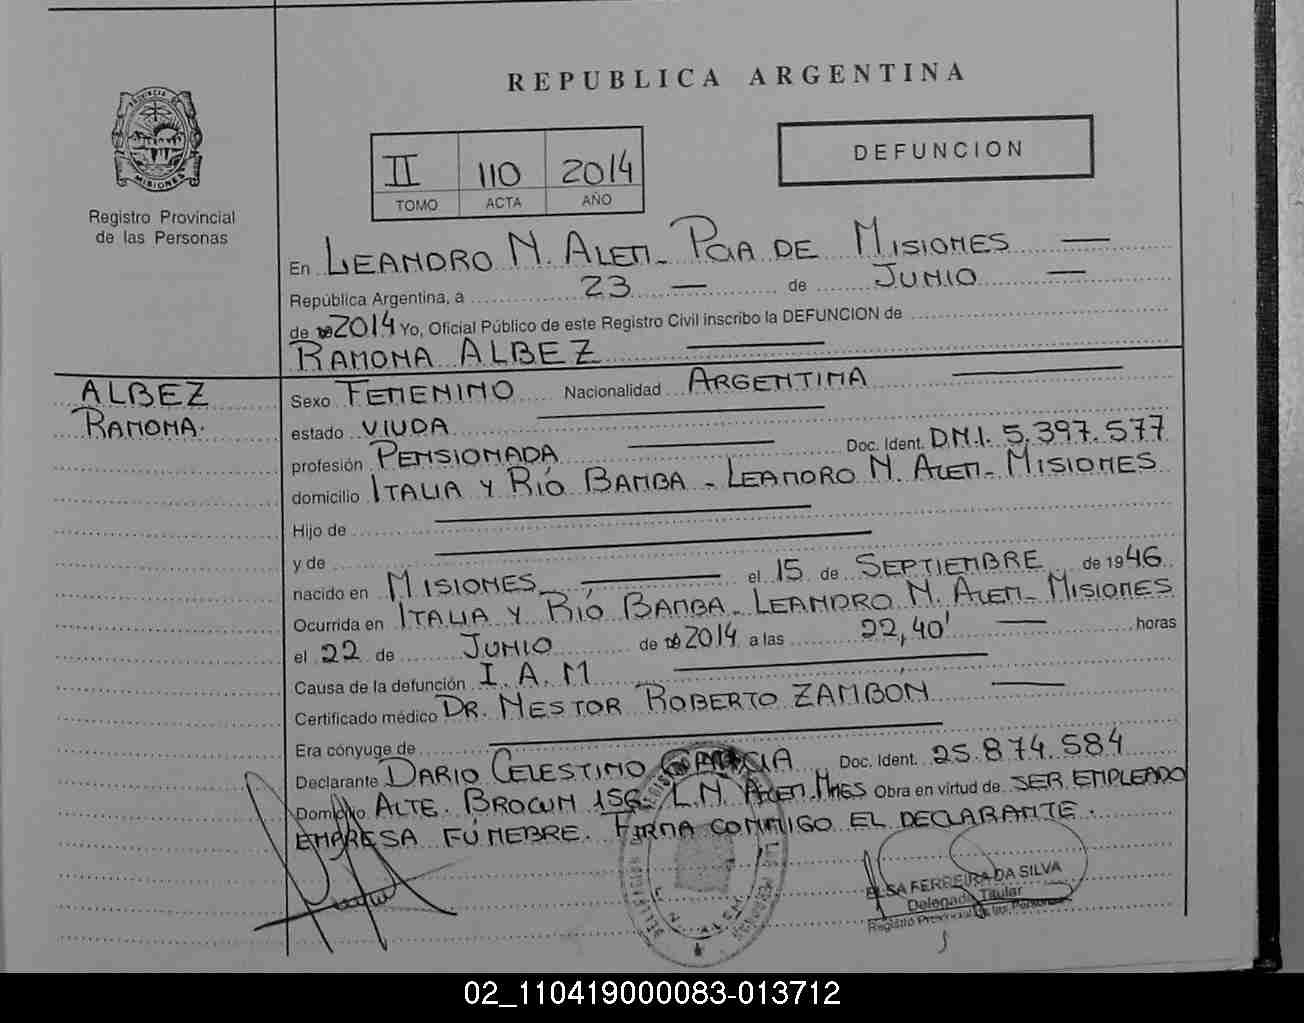 REPUBLICA ARGENTINA
PROVINCIA DE
MISIONES
Registro Provincial
de las Personas
II 110 2014
TOMO ACTA AÑO
DEFUNCION
En LEANDRO N. ALEM - PCIA DE MISIONES
República Argentina, a 23 de JUNIO
de 2014 Yo, Oficial Público de este Registro Civil inscribo la DEFUNCION de
RAMONA ALBEZ
ALBEZ
RAMONA.
Sexo FEMENINO Nacionalidad ARGENTINA
estado VIUDA
profesión PENSIONADA Doc. Ident. D.N.I. 5.397.577
domicilio ITALIA Y RIÓ BAMBA - LEANDRO N. ALEM - MISIONES
Hijo de
y de
nacido en MISIONES el 15 de SEPTIEMBRE de 1946
Ocurrida en ITALIA Y RIÓ BAMBA - LEANDRO N. ALEM - MISIONES
el 22 de JUNIO de 2014 a las 22,40' horas
Causa de la defunción I. A. M
Certificado médico DR. NESTOR ROBERTO ZAMBON
Era cónyuge de
Declarante DARIO CELESTINO GARCIA Doc. Ident. 25.874.584
Domicilio ALTE. BROWN 156 - L.N. ALEM. MNES Obra en virtud de SER EMPLEADO
EMPRESA FÚNEBRE. FIRMA CONMIGO EL DECLARANTE.
ELSA FERREIRA DA SILVA
Delegada Titular
Registro Provincial de las Personas
02_110419000083-013712